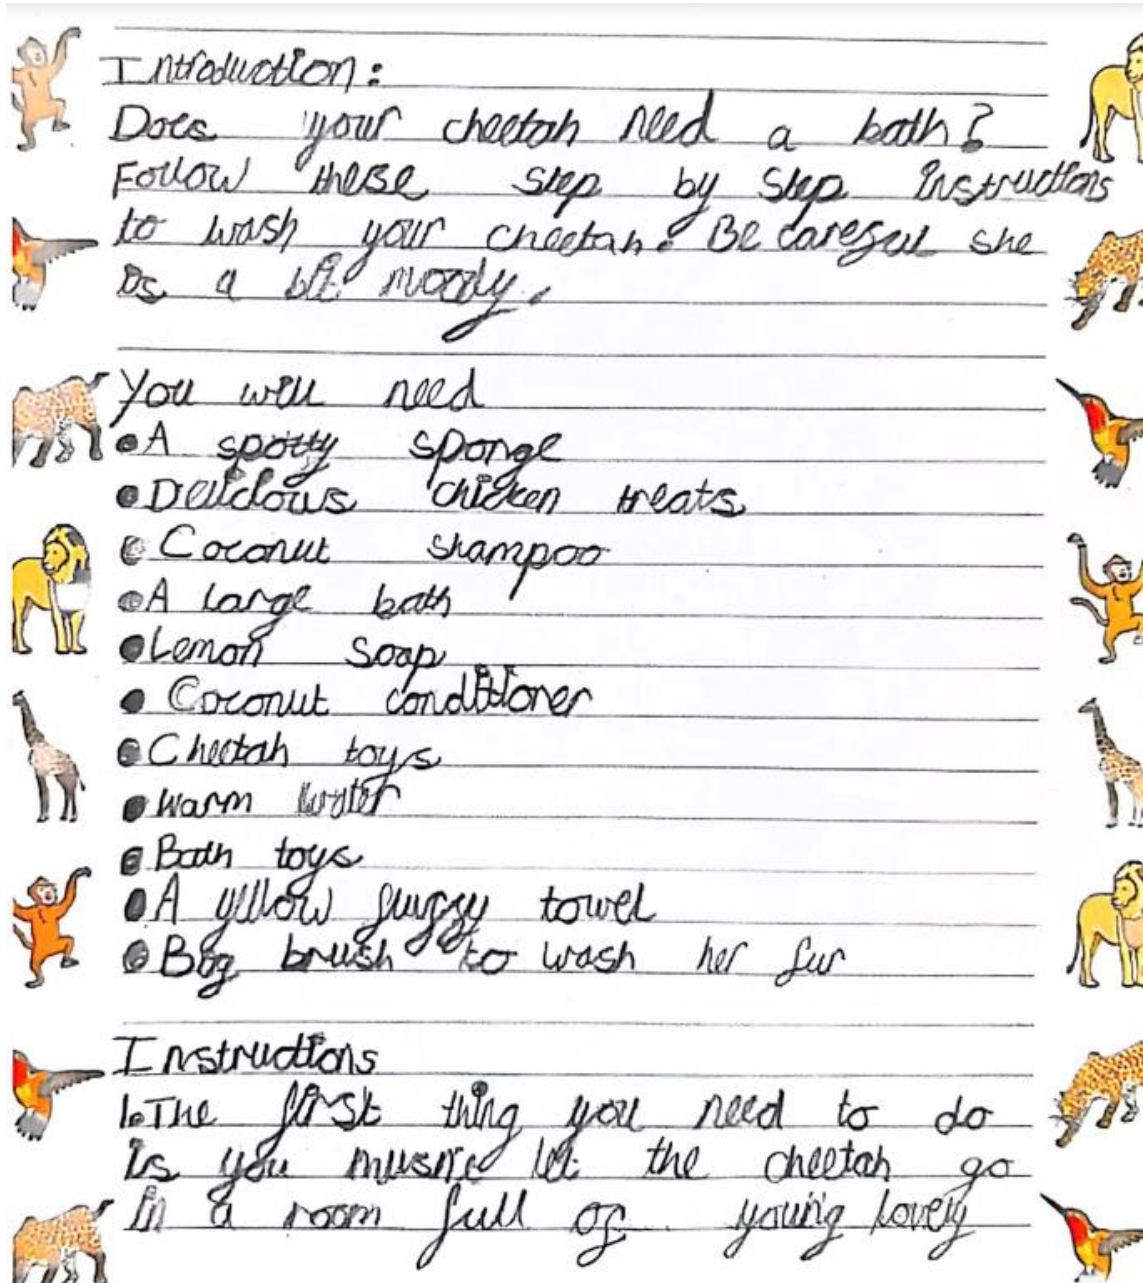 Introduction:
Does your cheetah need a bath?
Follow these step by step instructions
to wash your cheetah. Be careful she
is a bit moody.
You will need
•A spotty sponge
•Delicious chicken treats
•Coconut shampoo
•A large bath
•Lemon soap
•Coconut conditioner
•Cheetah toys
•Warm water
•Bath toys
•A yellow fluffy towel
•Big brush to wash her fur
Instructions
1.The first thing you need to do
is you let the cheetah go
in a room full of young lovely